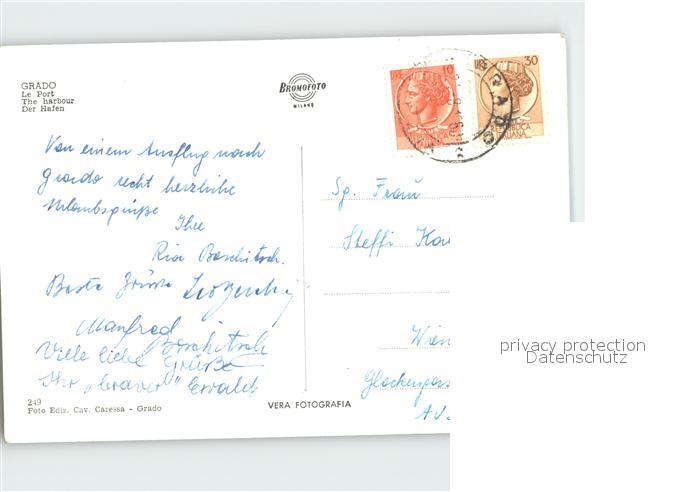 GRADO
Le Port
The harbour
Der Hafen
BROMOFOTO
MILANO
LIRE 10
LIRE 30
GRADO
Von einem Ausflug nach
Grado recht herzliche
Urlaubsgrüße
Ihre
Ria Baschitsch.
Beste Grüße
Manfred
Viele liebe Grüße
Ihr „braver" Ewald
Sg. Frau
Steffi
Wien
AV.
249
Foto Ediz. Cav. Caressa - Grado
VERA FOTOGRAFIA
privacy protection
Datenschutz